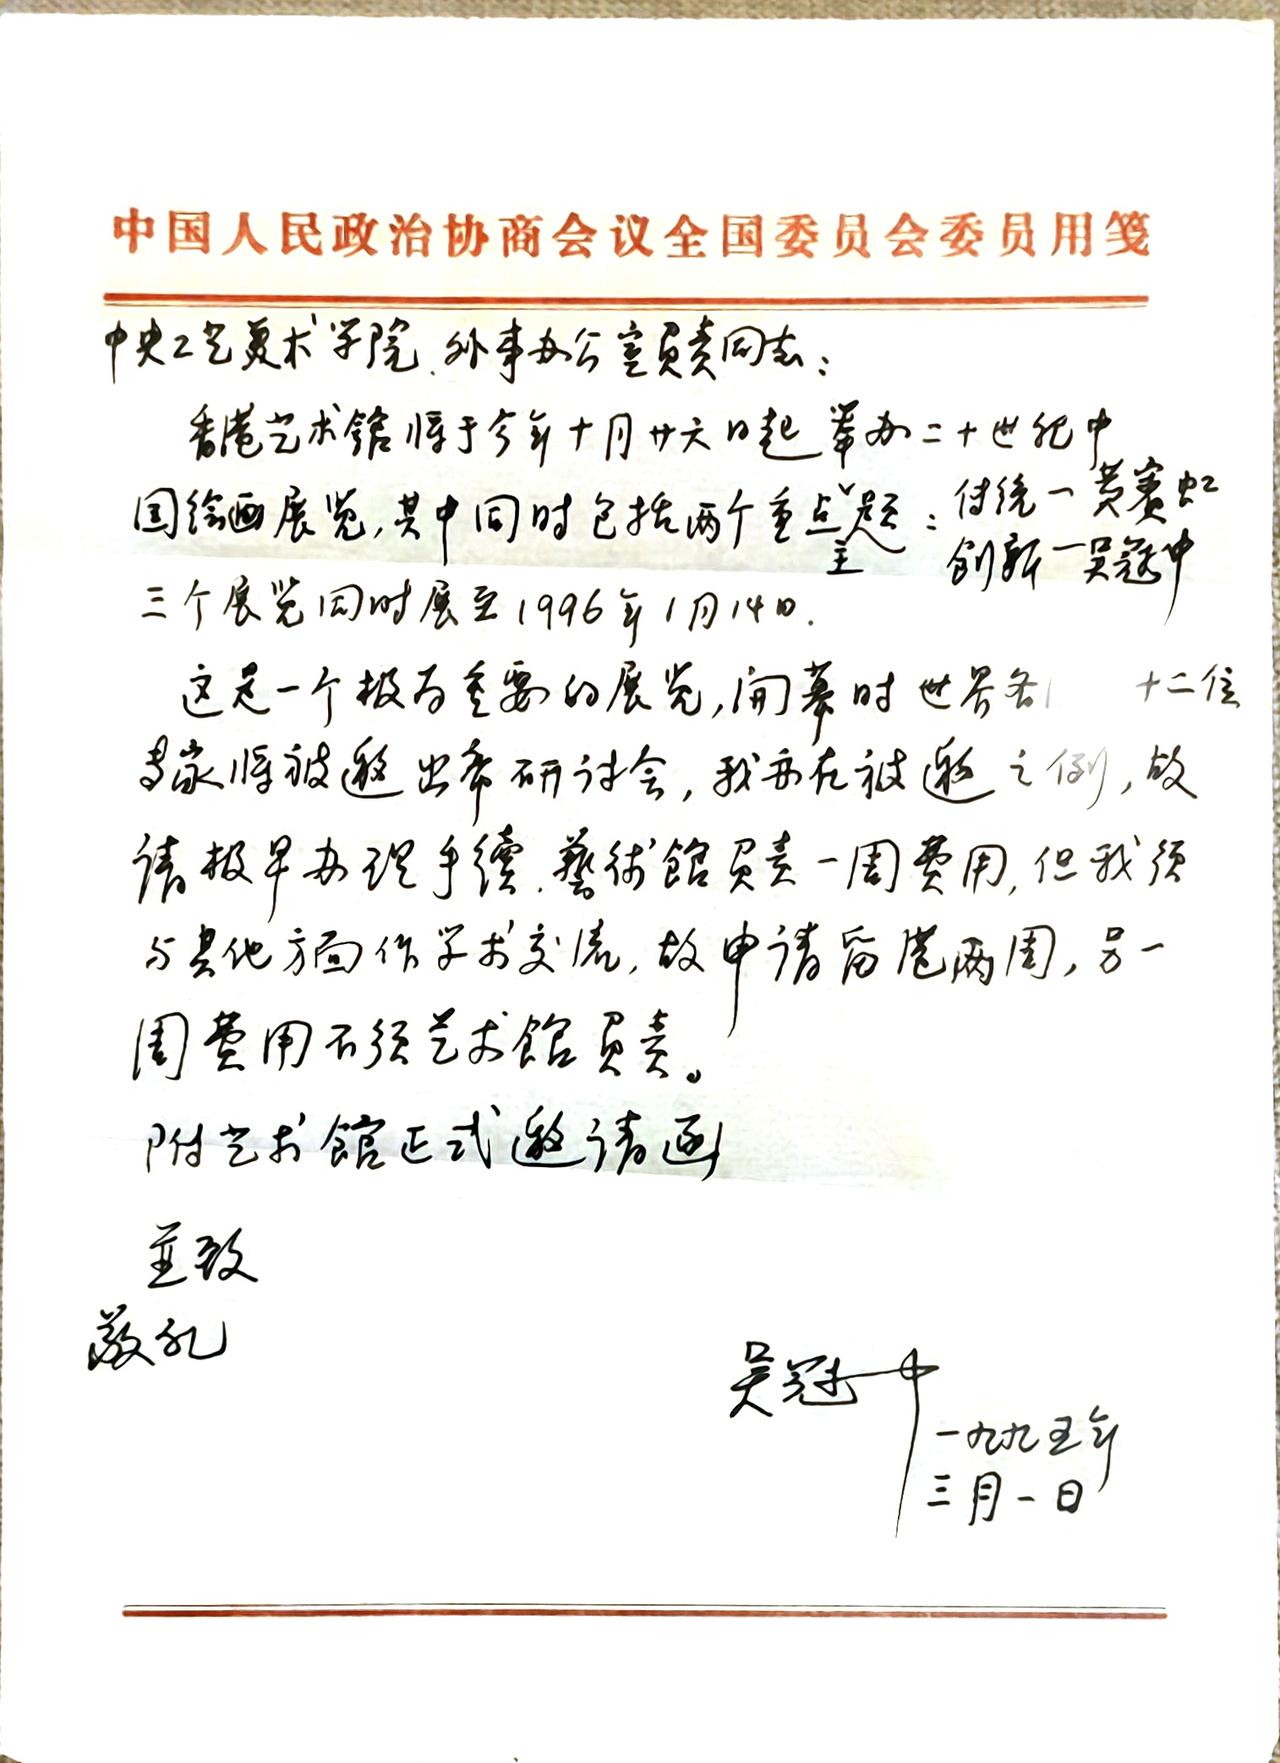 中国人民政治协商会议全国委员会委员用笺
中央工艺美术学院.外事办公室负责同志：
香港艺术館将于今年十月廿六日起举办二十世纪中
国绘画展览,其中同时包括两个重点主题：传统一黄賓虹
創新一吴冠中
三个展览同时展至1996年1月14日.
这是一个极为重要的展览,開幕时世界各 十二位
专家将被邀出席研讨会,我亦在被邀之例,故
请极早办理手续.藝術館負责一周费用,但我须
与其他方面作学术交流,故申请留港两周,另一
周费用不须艺术館負责。
附艺术館正式邀请函
並致
敬礼
吴冠中
一九九五年
三月一日